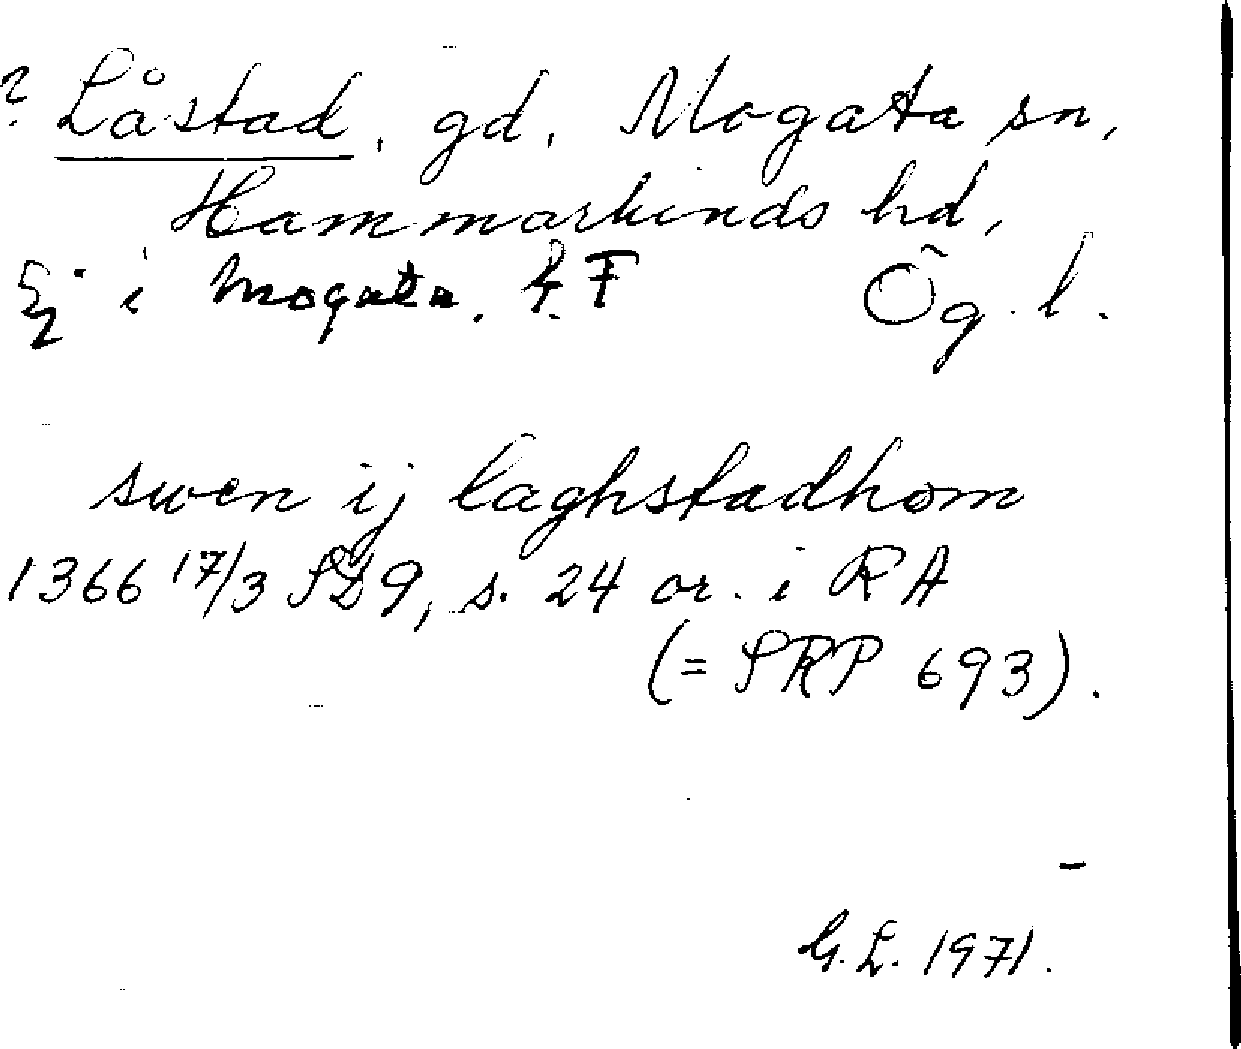 ? Låstad, gd, Mogata sn,
Hammarkinds hd,
Ej i Mogata. G. F Ög. l.
swen ij laghstadhom
1366 17/3 SD9, s. 24 or. i RA
(= SRP 693).
G. L. 1971.